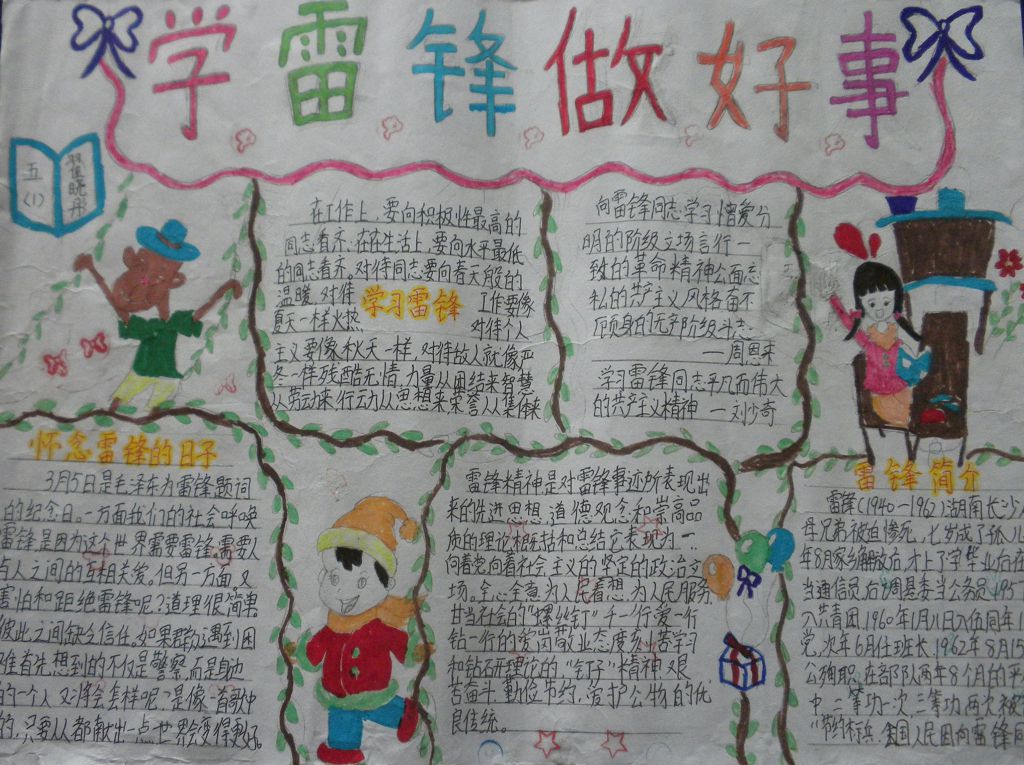 学雷锋做好事
五(1)
翟晓彤
在工作上,要向积极性最高的
同志看齐.在在生活上,要向水平最低
的同志看齐。对待同志要向春天般的
温暖.对待
学习雷锋
工作要像
夏天一样火热
对待个人
主义要像秋天一样,对待敌人就像严
冬一样残酷无情,力量从团结来智慧
从劳动来,行动从思想来荣誉从集体来
向雷锋同志学习憎爱分
明的阶级立场言行一
致的革命精神公而忘
私的共产主义风格奋不
顾身的无产阶级斗志.
——周恩来
学习雷锋同志平凡而伟大
的共产主义精神 —刘少奇
怀念雷锋的日子
3月5日是毛泽东为雷锋题词
的纪念日。一方面我们的社会呼唤
雷锋,是因为这个世界需要雷锋,需要人
与人之间的互相关爱。但另一方面,又
害怕和距绝雷锋呢?道理很简单
彼此之间缺乏信任。如果群众遇到困
难首先想到的不仅是警察,而是身边
的一个人又将会怎样呢?是像首歌中
的,只要人人都献出一点,世界会变得更好。
雷锋精神是对雷锋事迹所表现出
来的先进思想,道德观念和崇高品
质的理论概括和总结它表现为一.
向着党向着社会主义的坚定的政治立
场。全心全意为人民着想,为人民服务.
甘当社会的"螺丝钉"干一行爱一行
钻一行的爱岗敬业态度.刻苦学习
和钻研理论的"钉子"精神.艰
苦奋斗.勤俭节约,爱护公物的优
良传统。
雷锋简介
雷锋(1940—1962)湖南长沙人
母兄弟被迫惨死,七岁成了孤儿
年8月家乡解放后,才上了学毕业后在
当通信员后了周县委当公务员,1957
入共青团,1960年1月八日入伍同年1
党,次年6月任班长,1962年8月15
公殉职.在部队两年8个月的
中,二等功一次,三等功两次被
节约标兵.全国人民因向雷锋同